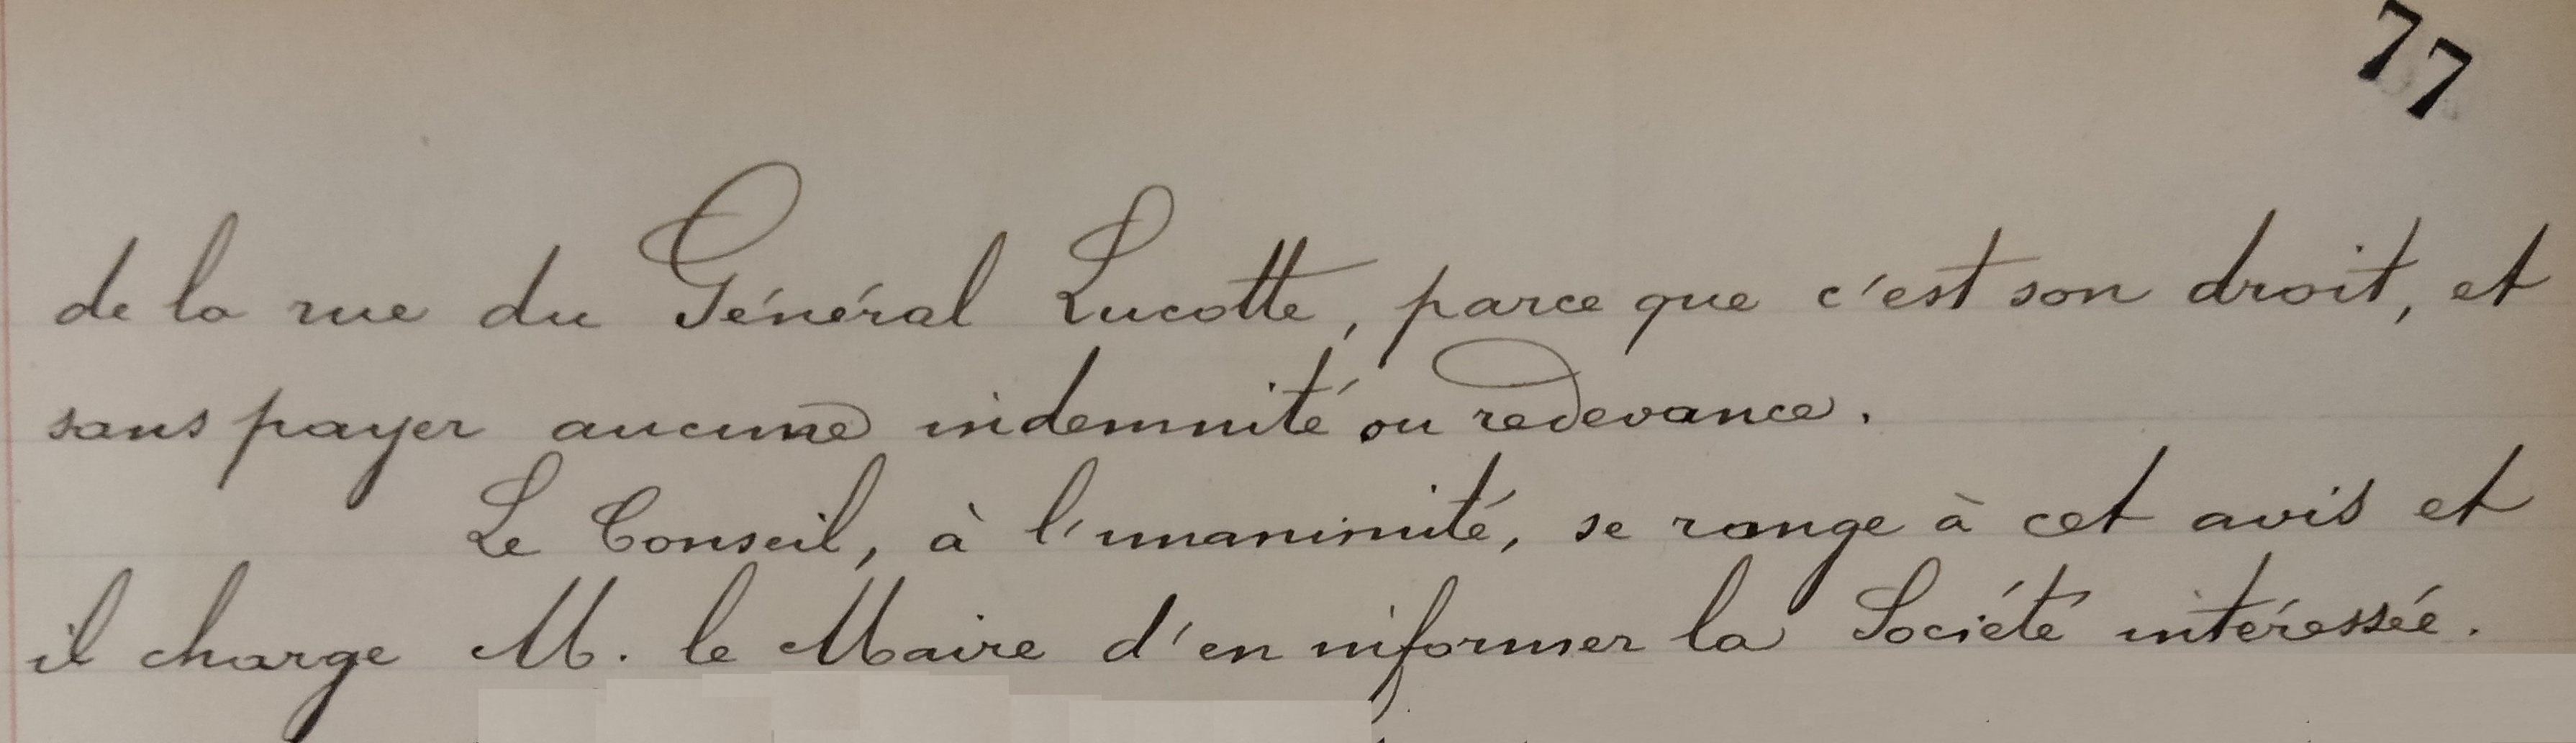 77
de la rue du Général Lucotte, parce que c'est son droit, et
sans payer aucune indemnité ou redevance.
Le Conseil, à l'unanimité, se range à cet avis et
il charge M. le Maire d'en informer la Société intéressée.